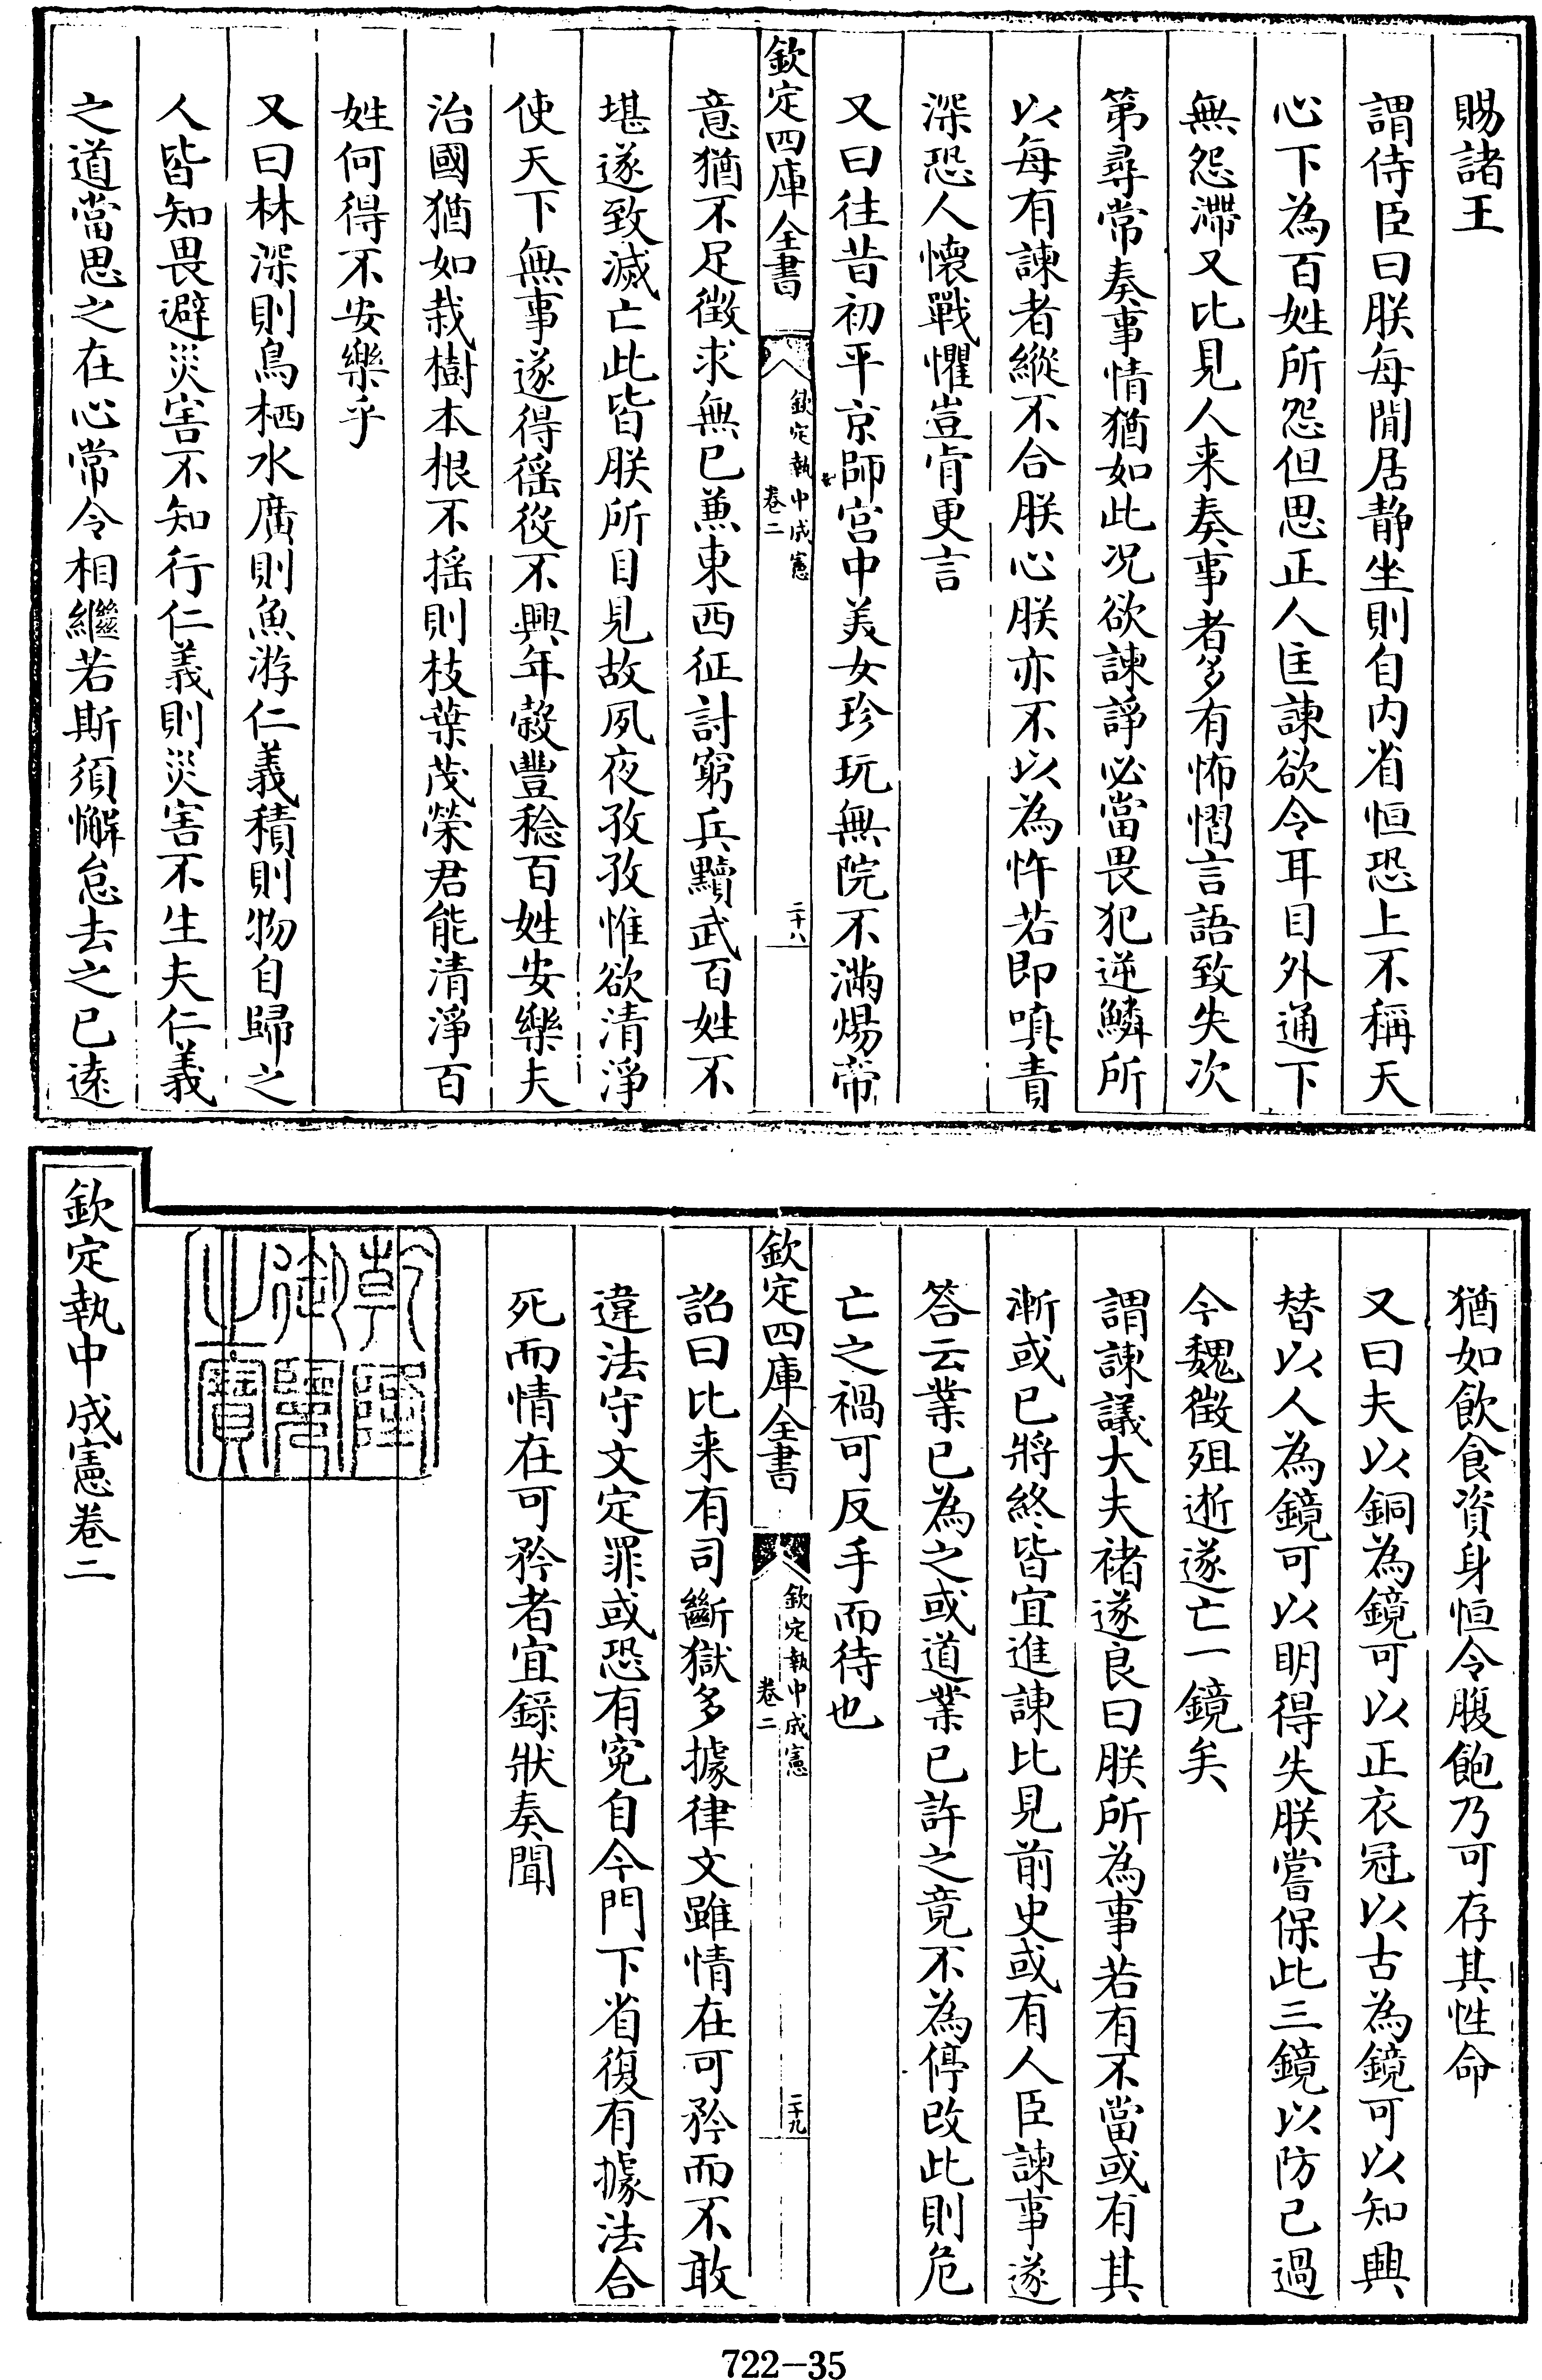 賜諸王
謂侍臣曰朕每閒居静坐則自内省恒恐上不稱天
心下為百姓所怨但思正人匡諫欲令耳目外通下
無怨滯又比見人来奏事者多有怖慴言語致失次
第尋常奏事情猶如此况欲諫諍必當畏犯逆鱗所
以每有諫者縱不合朕心朕亦不以為忤若即嗔責
深恐人懷戰懼豈肯更言
又曰往昔初平京師宫中美女珍玩無院不滿煬帝
欽定四庫全書
欽定執中成憲
卷二
二十八
意猶不足徵求無已兼東西征討窮兵黷武百姓不
堪遂致滅亡此皆朕所目見故夙夜孜孜惟欲清淨
使天下無事遂得徭役不興年穀豐稔百姓安樂夫
治國猶如栽樹本根不摇則枝葉茂榮君能清淨百
姓何得不安樂乎
又曰林深則鳥栖水廣則魚游仁義積則物自歸之
人皆知畏避災害不知行仁義則災害不生夫仁義
之道當思之在心常令相繼若斯須懈怠去之已遠
猶如飲食資身恒令腹飽乃可存其性命
又曰夫以銅為鏡可以正衣冠以古為鏡可以知興
替以人為鏡可以明得失朕嘗保此三鏡以防己過
今魏徵殂逝遂亡一鏡矣
謂諫議大夫褚遂良曰朕所為事若有不當或有其
漸或已將終皆宜進諫比見前史或有人臣諫事遂
答云業已為之或道業已許之竟不為停改此則危
亡之禍可反手而待也
欽定四庫全書
欽定執中成憲
卷二
二十九
詔曰比来有司斷獄多據律文雖情在可矜而不敢
違法守文定罪或恐有寃自今門下省復有據法合
死而情在可矜者宜録狀奏聞
乾隆
御覽
之寶
欽定執中成憲卷二
722-35